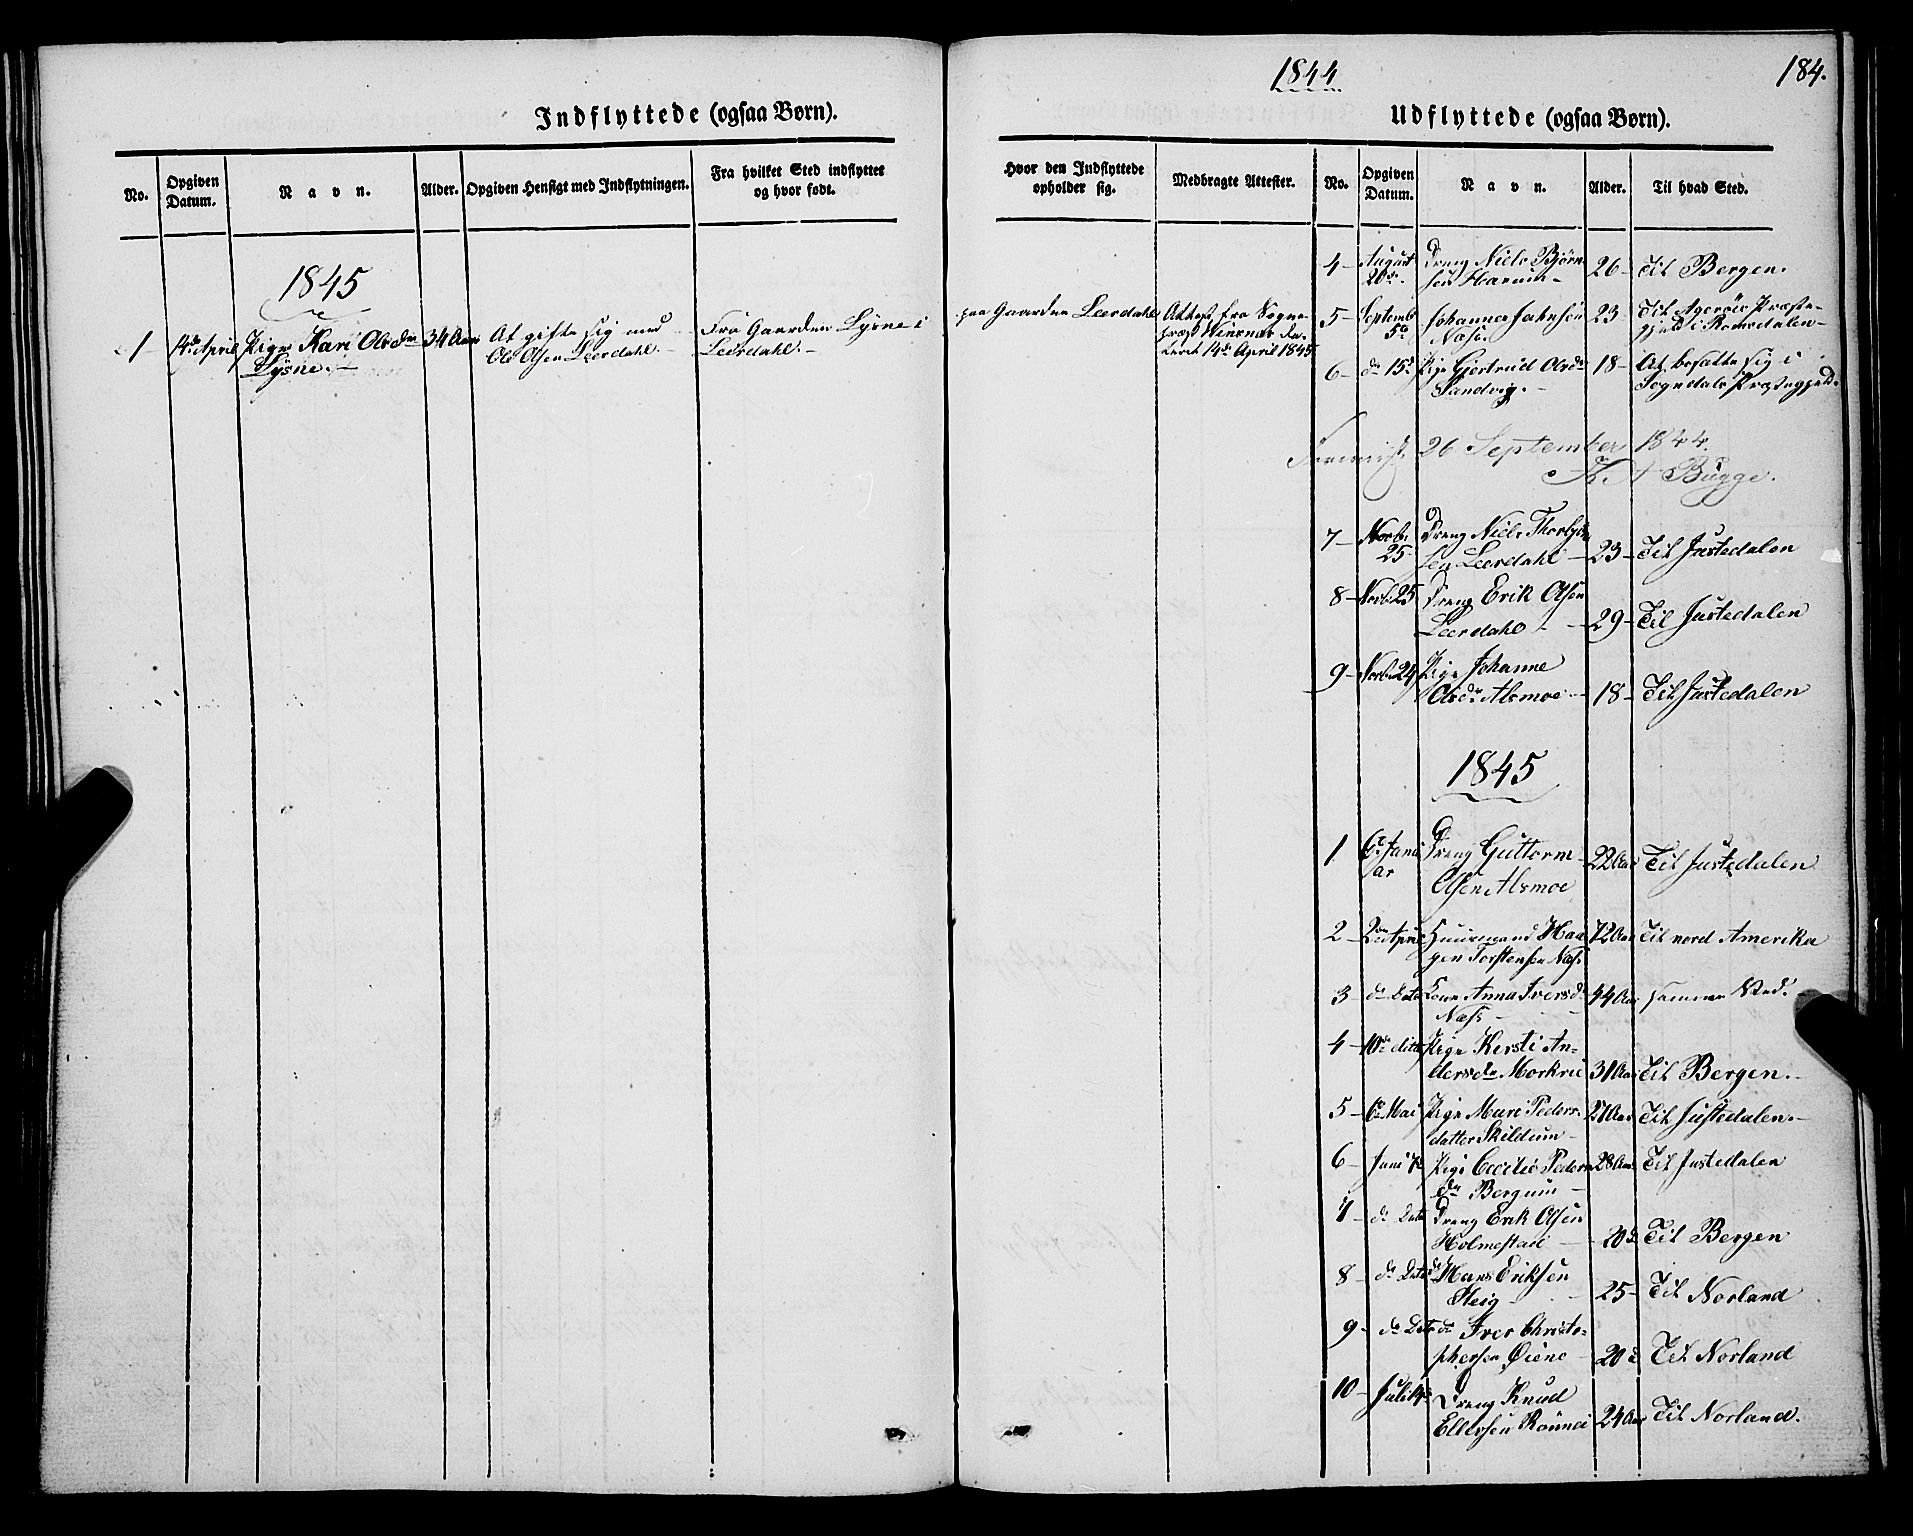 Indflyttede (ogsaa Børn).
No.
Opgiven Datum.
Navn.
Alder.
Opgiven Hensigt med Indflytningen.
Fra hvilket Sted indflyttet
og hvor født.
1845
1 14de April Pige Kari Olsdr 34 Aar At gifte sig med Fra Gaarden Lysne i
Lysne. Ole Olsen Leerdahl. Leerdahl.
1844
184.
Udflyttede (ogsaa Børn).
Hvor den Indflyttede
opholder sig.
Medbragte Attester.
No.
Opgiven Datum.
Navn.
Alder.
Til hvad Sted.
paa Gaarden Leerdahl Attest fra Sogne-
præst da-
teret 14de April 1845
4 August Dreng Niels Bjørn- 26 Til Bergen.
20de sen Harum
5 Septemb Johannes Johnsen 23 Til Agerøe Præste-
5te Næss. gjeld i Romsdalen
6 do 15de Pige Gjertrud Olsdr 18 At bosætte sig i
Sandvig. Sogndals Præstegjeld.
26 September 1844.
Bugge.
7 Novbr Dreng Niels
25 sen Leerdahl 23 Til Justedalen
8 Novbr 25 Dreng Erik Olsen
Leerdahl 29 Til Justedalen
9 Novbr 24 Pige Johanne
Olsdr Alsmoe 18 Til Justedalen
1845
1 6te Janu Dreng Guttorm 22 Aar Til Justedalen
ar Olsen Alsmoe
2 2den April Huusmand Haa- 72 Aar Til nord Amerika
gen Torstensen Næss
3 do Dato Kone Anna Iversdr 44 Aar samme Sted.
Næss
4 10de ditto Pige Kersti An-
dersdr Morkrie 31 Aar Til Bergen.
5 6te Mai Pige Mari Peders- 27 Aar Til Justedalen.
datter Skildum
6 Juni Pige Cecilie Peders 28 Aar Til Justedalen
dr Bergum
7 do Dato Dreng Erik Olsen
Holmestad 20 do Til Bergen
8 do Dato do Hans Eriksen
Steig 25 Til Norland
9 do Dato do Iver Christo-
phersen Øiene 20 do Til Norland
10 Juli Dreng Knud
Ellefsen Rønnei 24 Aar Til Norland.